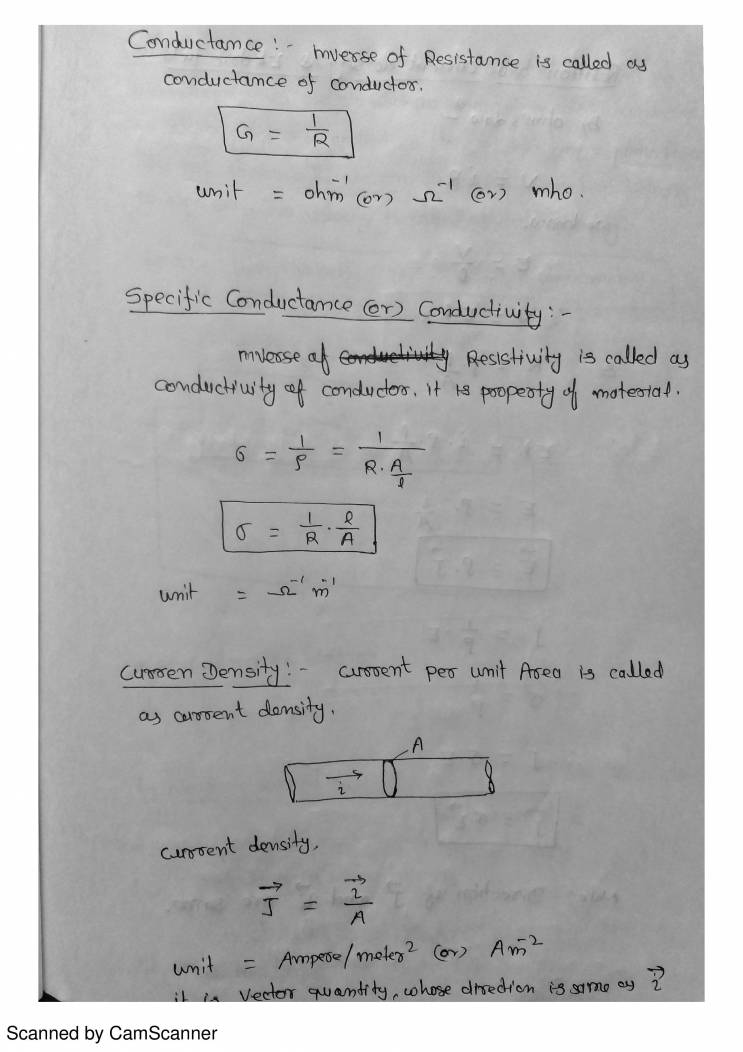 Conductance :- inverse of Resistance is called as
conductance of conductor.
G = 1/R
unit = ohm⁻¹ (or) Ω⁻¹ (or) mho.
Specific Conductance (or) Conductivity :-
inverse of ~~Conductivity~~ Resistivity is called as
conductivity of conductor. it is property of material.
σ = 1/ρ = 1/(R. A/l)
σ = 1/R . l/A
unit = Ω⁻¹ m⁻¹
Curren Density :- current per unit Area is called
as current density.
A
i
current density,
J⃗ = i⃗/A
unit = Ampere/meter² (or) Am⁻²
it is vector quantity, whose direction is same as i⃗
Scanned by CamScanner